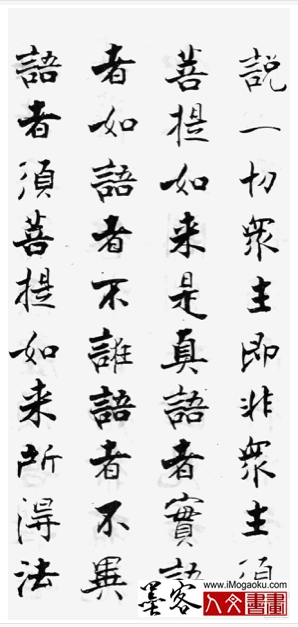 說一切眾生即非眾生須
菩提如来是真語者實語
者如語者不誑語者不異
語者須菩提如来所得法
www.iMogaoku.com
墨客
人文書畫